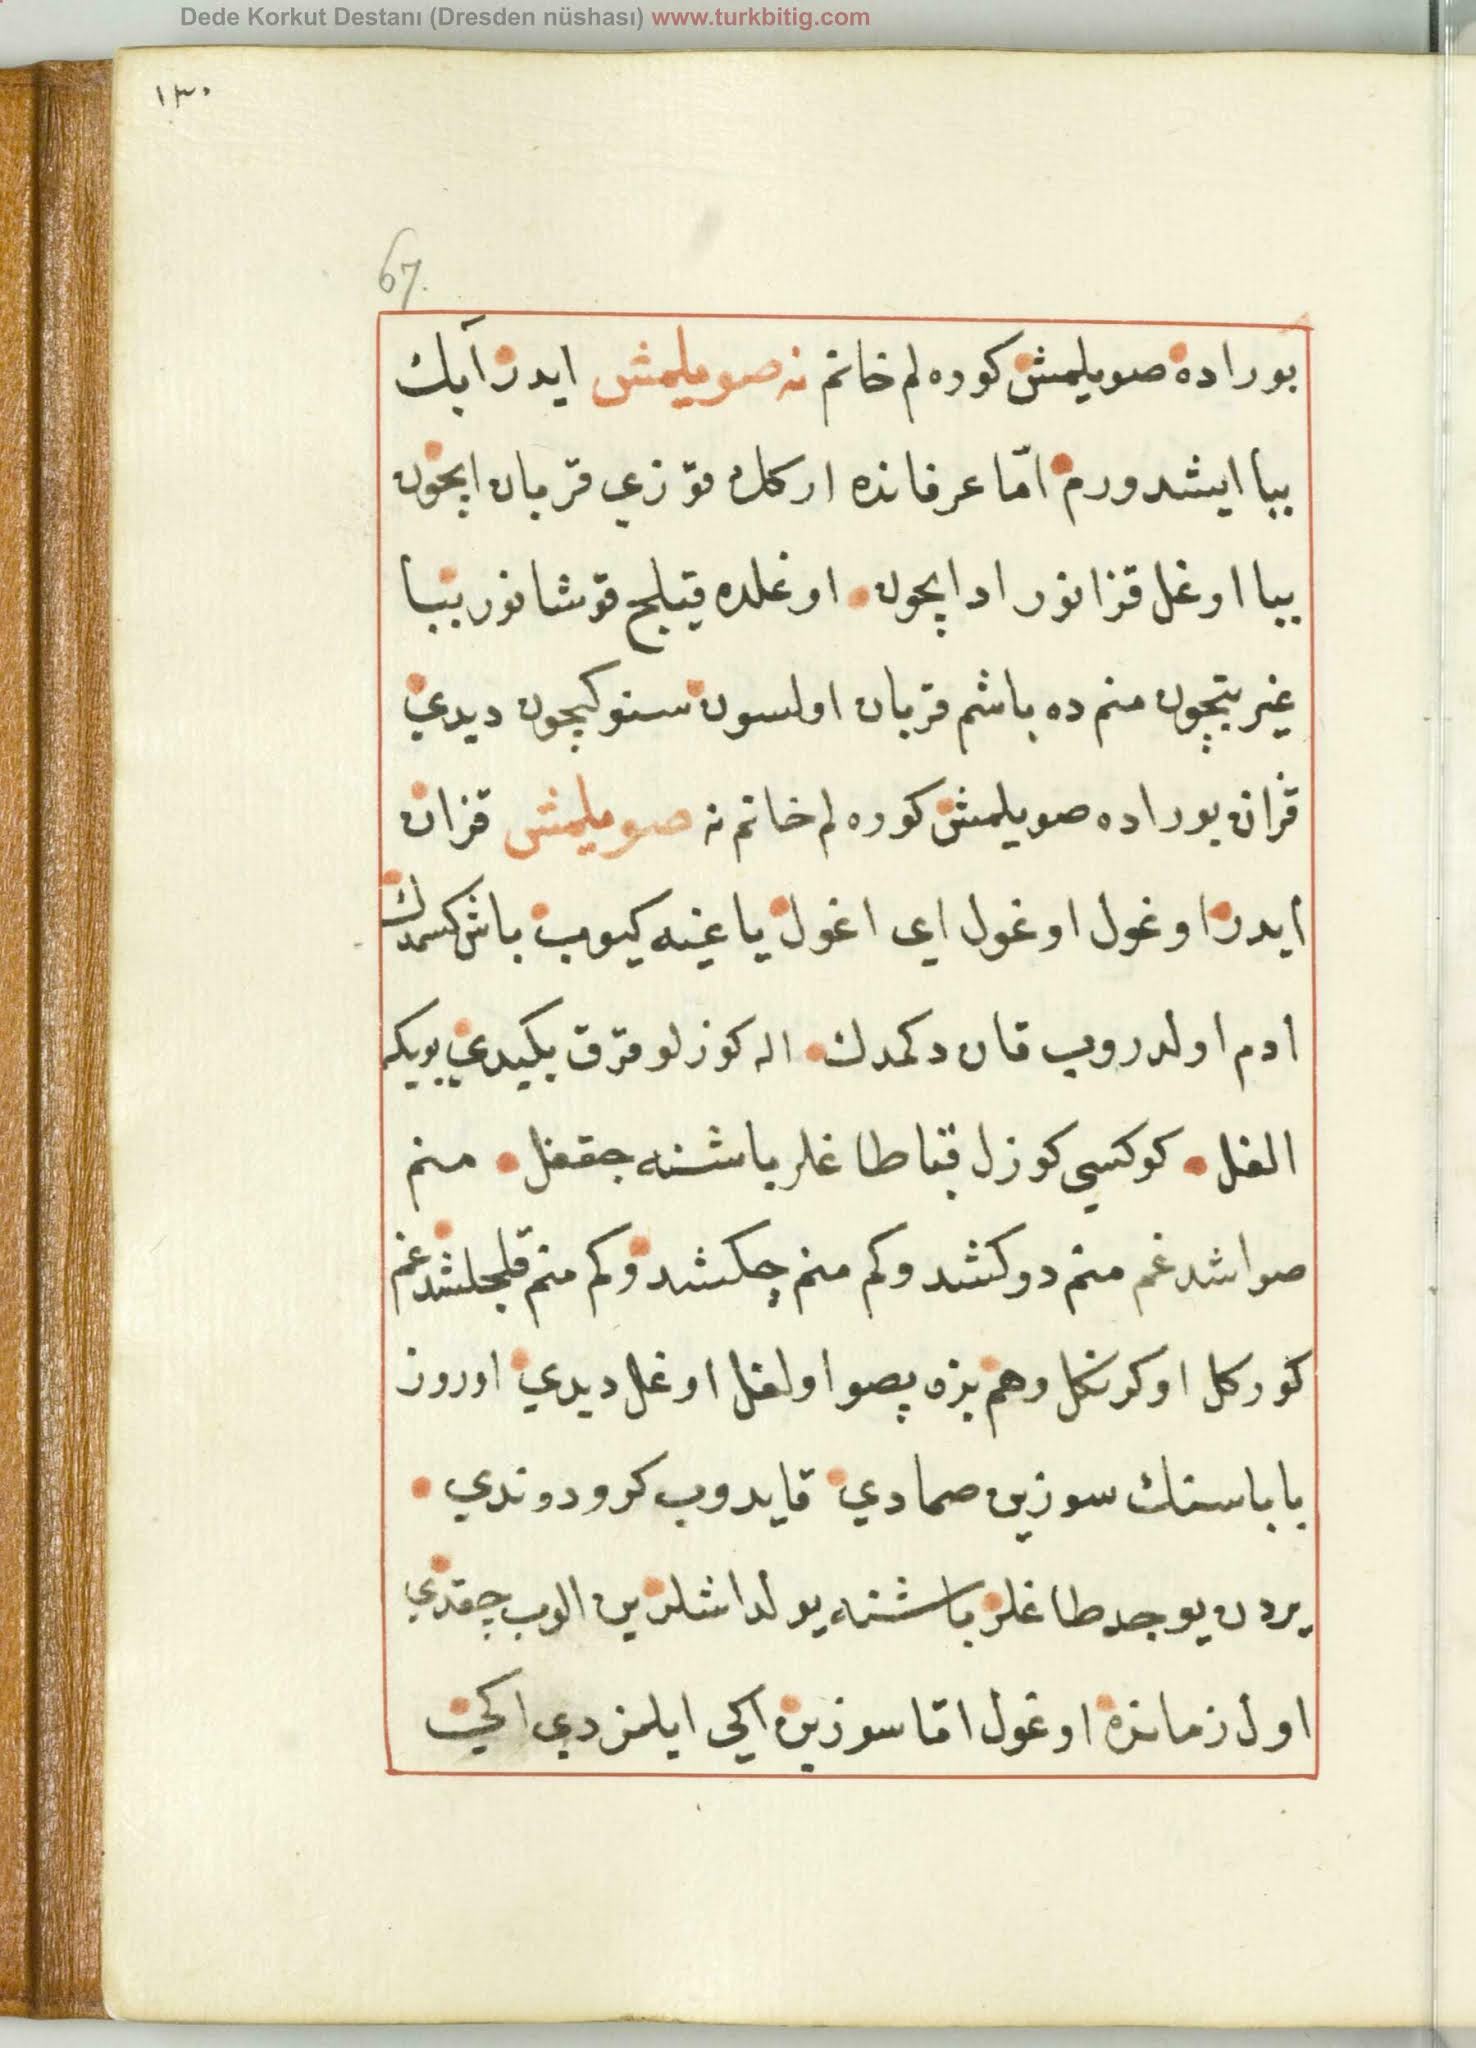 Dede Korkut Destanı (Dresden nüshası) www.turkbitig.com
١٣٠
67.
بوراده صويلمش كوره لم خانم نه صويلمش ايدر آبك
ببا ايشدورم امّا عرفانده اركك قوزي قربان ايچون
ببا اوغل قزانور اد ايچون اوغلده قيلج قوشانور ببا
غيرتيچون منم ده باشم قربان اولسون سنوكيچون ديدي
قزان بوراده صويلمش كوره لم خانم نه صويلمش قزان
ايدر اوغول اوغول اى اغول ياغينه كيروب باش كسمدك
ادم اولدروب قان دكمدك اله كوزلو قرق يكيدي بويكه
الغل كوكسي كوزل قبا طاغلر باشنه جقغل منم
صواشدغم منم دوكشدوكم منم چكشدوكم منم قلجلشدغم
كوركل اوكرنكل وهم بزه پصو اولغل اوغل ديدي اوروز
باباسنك سوزين صمادي قايدوب كرو دوندي
يردن يوجه طاغلر باشنه يولداشلرين الوب چقدي
اول زمانده اوغول اتا سوزين اكي ايلمزدي اكي